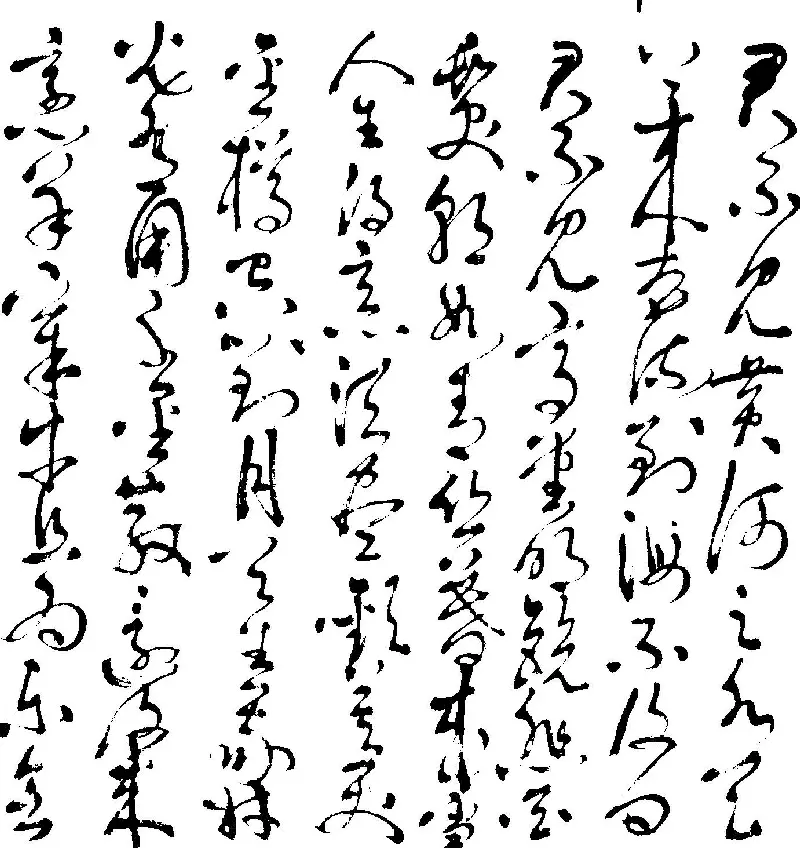 君不見黃河之水天
上來奔流到海不復回
君不見高堂明鏡悲白
髮朝如青絲暮成雪
人生得意須盡歡莫使
金樽空對月天生我材
必有用千金散還復來
烹羊宰牛且為樂會